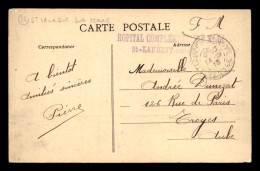 CARTE POSTALE
F M
HOPITAL COMPLÉ
St-LAURENT
Correspondance
Adresse
A bientôt
amitiés sincères
Pierre
Mademoiselle
Andrée
126 Rue de Paris
Troyes
Aube